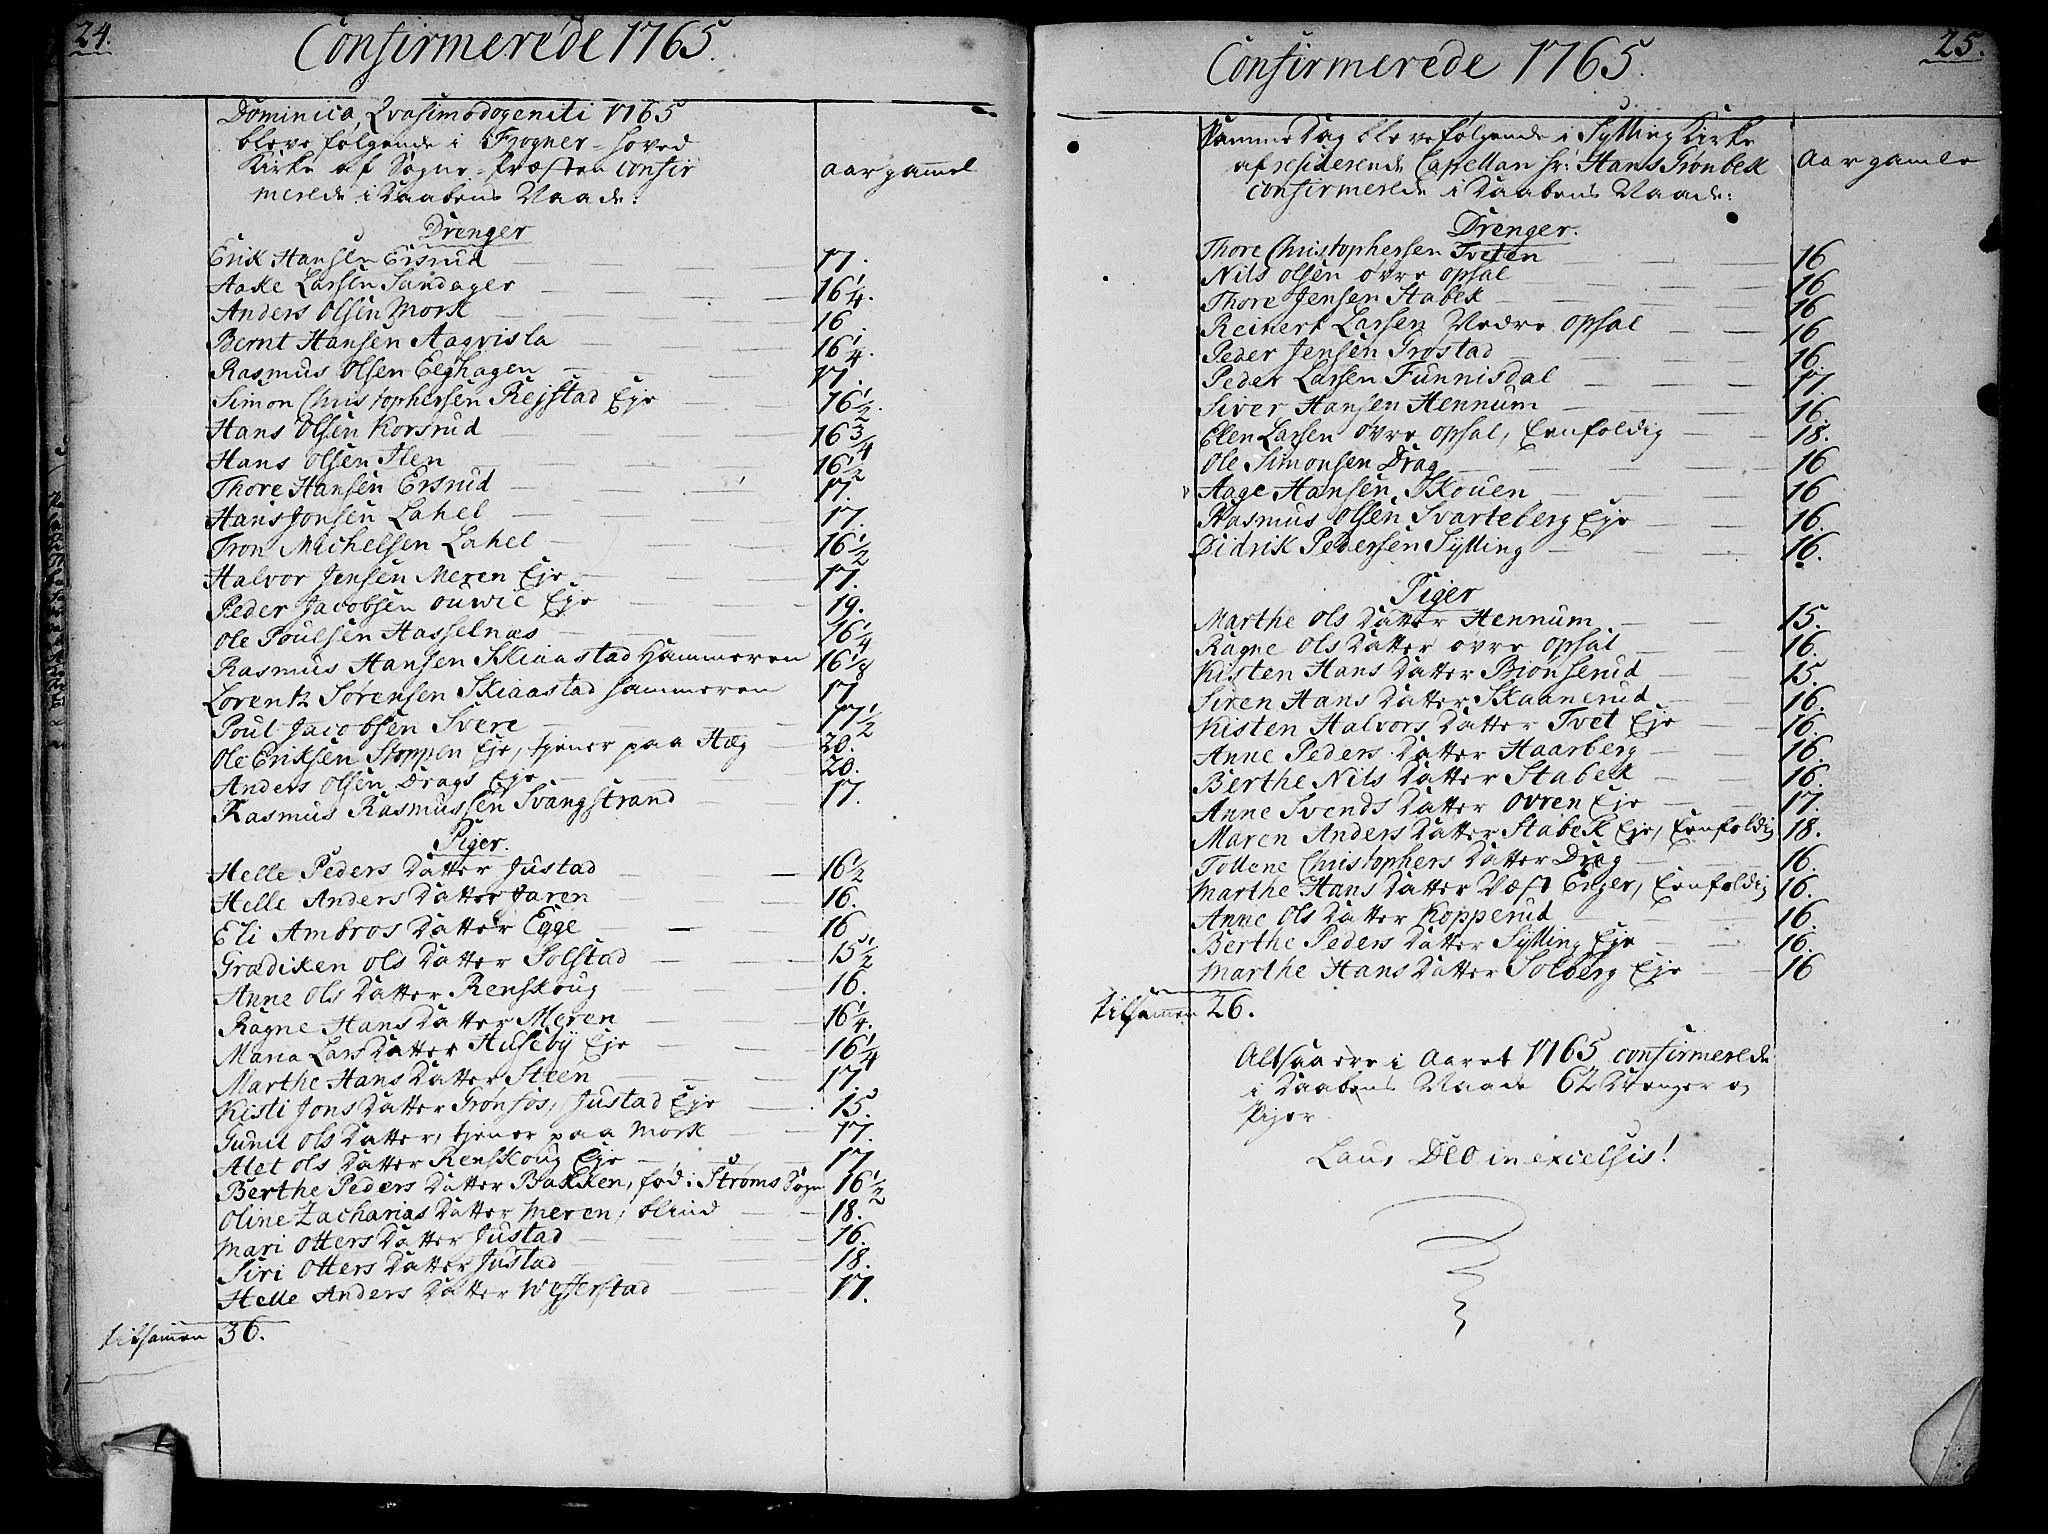 24.
Confirmerede 1765.
Dominica Qvasimodogeniti 1765
bleve følgende i Frogner-hoved
Kirke af Sogne-Præsten confir
merede i Daabens Naade:
aar gammel
Drenger
Erik Hansen Ersrud 17.
Aake Larsen Sandager 16 1/4.
Anders Olsen Mork 16
Bernt Hansen Aaqvisla 16 1/4.
Rasmus Olsen Eeghagen 17.
Simon Christophersen Rejstad Eje 16 1/2.
Hans Olsen Korsrud 16 3/4
Hans Olsen Hen 16 1/2
Thore Hansen Ersrud 17.
Hans Jonsen Lahel 17.
Tron Michelsen Lahel 16 1/2
Halvor Jensen Meren Eje 17.
Peder Jacobsen ouwie Eje 19.
Ole Poulsen Hasselnæs 16 1/4
Rasmus Hansen Skiaastad Hammeren 16 1/8
Lorentz Sørensen Skiaastad hammeren 17
Poul Jacobsen Svere 17 1/2
Ole Eriksen Stoppen Eje, tjener paa Hæg 20.
Anders Olsen Drags Eje 20.
Rasmus Rasmussen Svangstrand 17.
Piger.
Helle Peders Datter Justad 16 1/2
Helle Anders Datter Jaren 16.
Eli Ambros Datter Egge 16
Grædiken Ols Datter Solstad 15 1/2
Anne Ols Datter Renskoug 16.
Ragne Hans Datter Meren 16 1/4.
Maria Lars Datter Huseby Eje 16 1/4
Marthe Hans Datter Steen 17.
Kisti Jons Datter Grønsøs, Justad Eje 15.
Gunil Ols Datter, tjener paa Mork 17.
Alet Ols Datter Renskoug Eje 17
Berthe Peders Datter Bakken, fød i Strøms Sogn 16 1/2
Oline Zacharias Datter Meren, blind 18.
Mari Otters Datter Justad 16.
Siri Otters Datter Justad 18.
Helle Anders Datter Wefferstad 17.
tilsamen 36.
25.
Confirmerede 1765.
Samme Dag bleve følgende i Sylling Kirke
af residerende Capellan hr: Hans Grønbek
confirmerede i Daabens Naade:
Aar gamle
Drenger.
Thore Christophersen Tveten 16
Nils Olsen øvre opsal 16
Thore Jensen Stabek 16
Reinert Larsen Nedre opsal 16
Peder Jensen Grøstad 16.
Peder Larsen Funnisdal 17.
Siver Hansen Hennum 16.
Elen Larsen øvre opsal, Eenfoldig 18.
Ole Simonsen Drag 16
Aage Hansen Skouen 16
Rasmus Olsen Svarteberg Eje 16.
Didrik Pedersen Sylling 16.
Piger
Marthe Ols Datter Hennum 15.
Ragne Ols Datter øvre opsal 16.
Kisten Hans Datter Biønserud 15.
Siren Hans Datter Skaanerud 16.
Kisten Halvors Datter Tvet Eje 16.
Anne Peders Datter Haarberg 16.
Berthe Nils Datter Stabek 16.
Anne Svends Datter Ovren Eje 17.
Maren Anders Datter Stabek Eje, Eenfoldig 18.
Tollene Christophers Datter Drag 16.
Marthe Hans Datter Væst Enger, Eenfoldig 16.
Anne Ols Datter Kopperud 16.
Berthe Peders Datter Sylling Eje 16.
Marthe Hans Datter Solberg Eje 16
tilsamen 26.
Altsaa ere i Aaret 1765 confirmerede
i Daabens Naade 62 Drenger og
Piger
Laus Deo in excelsis!